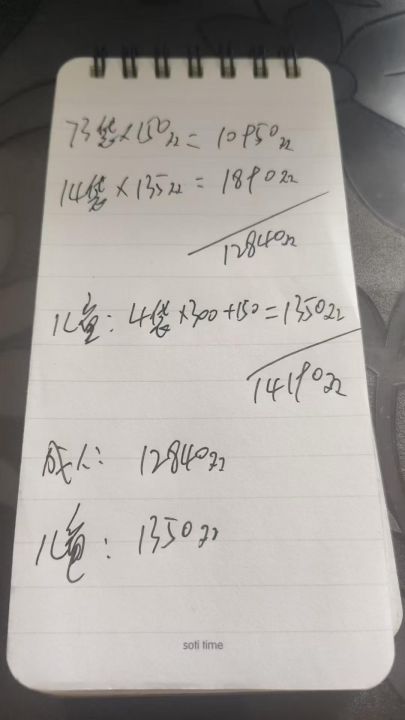 73袋×150元=10950元
14袋×135元=1890元
12840元
儿童:4袋×300+150=1350元
14190元
成人:12840元
儿童:1350元
soti time